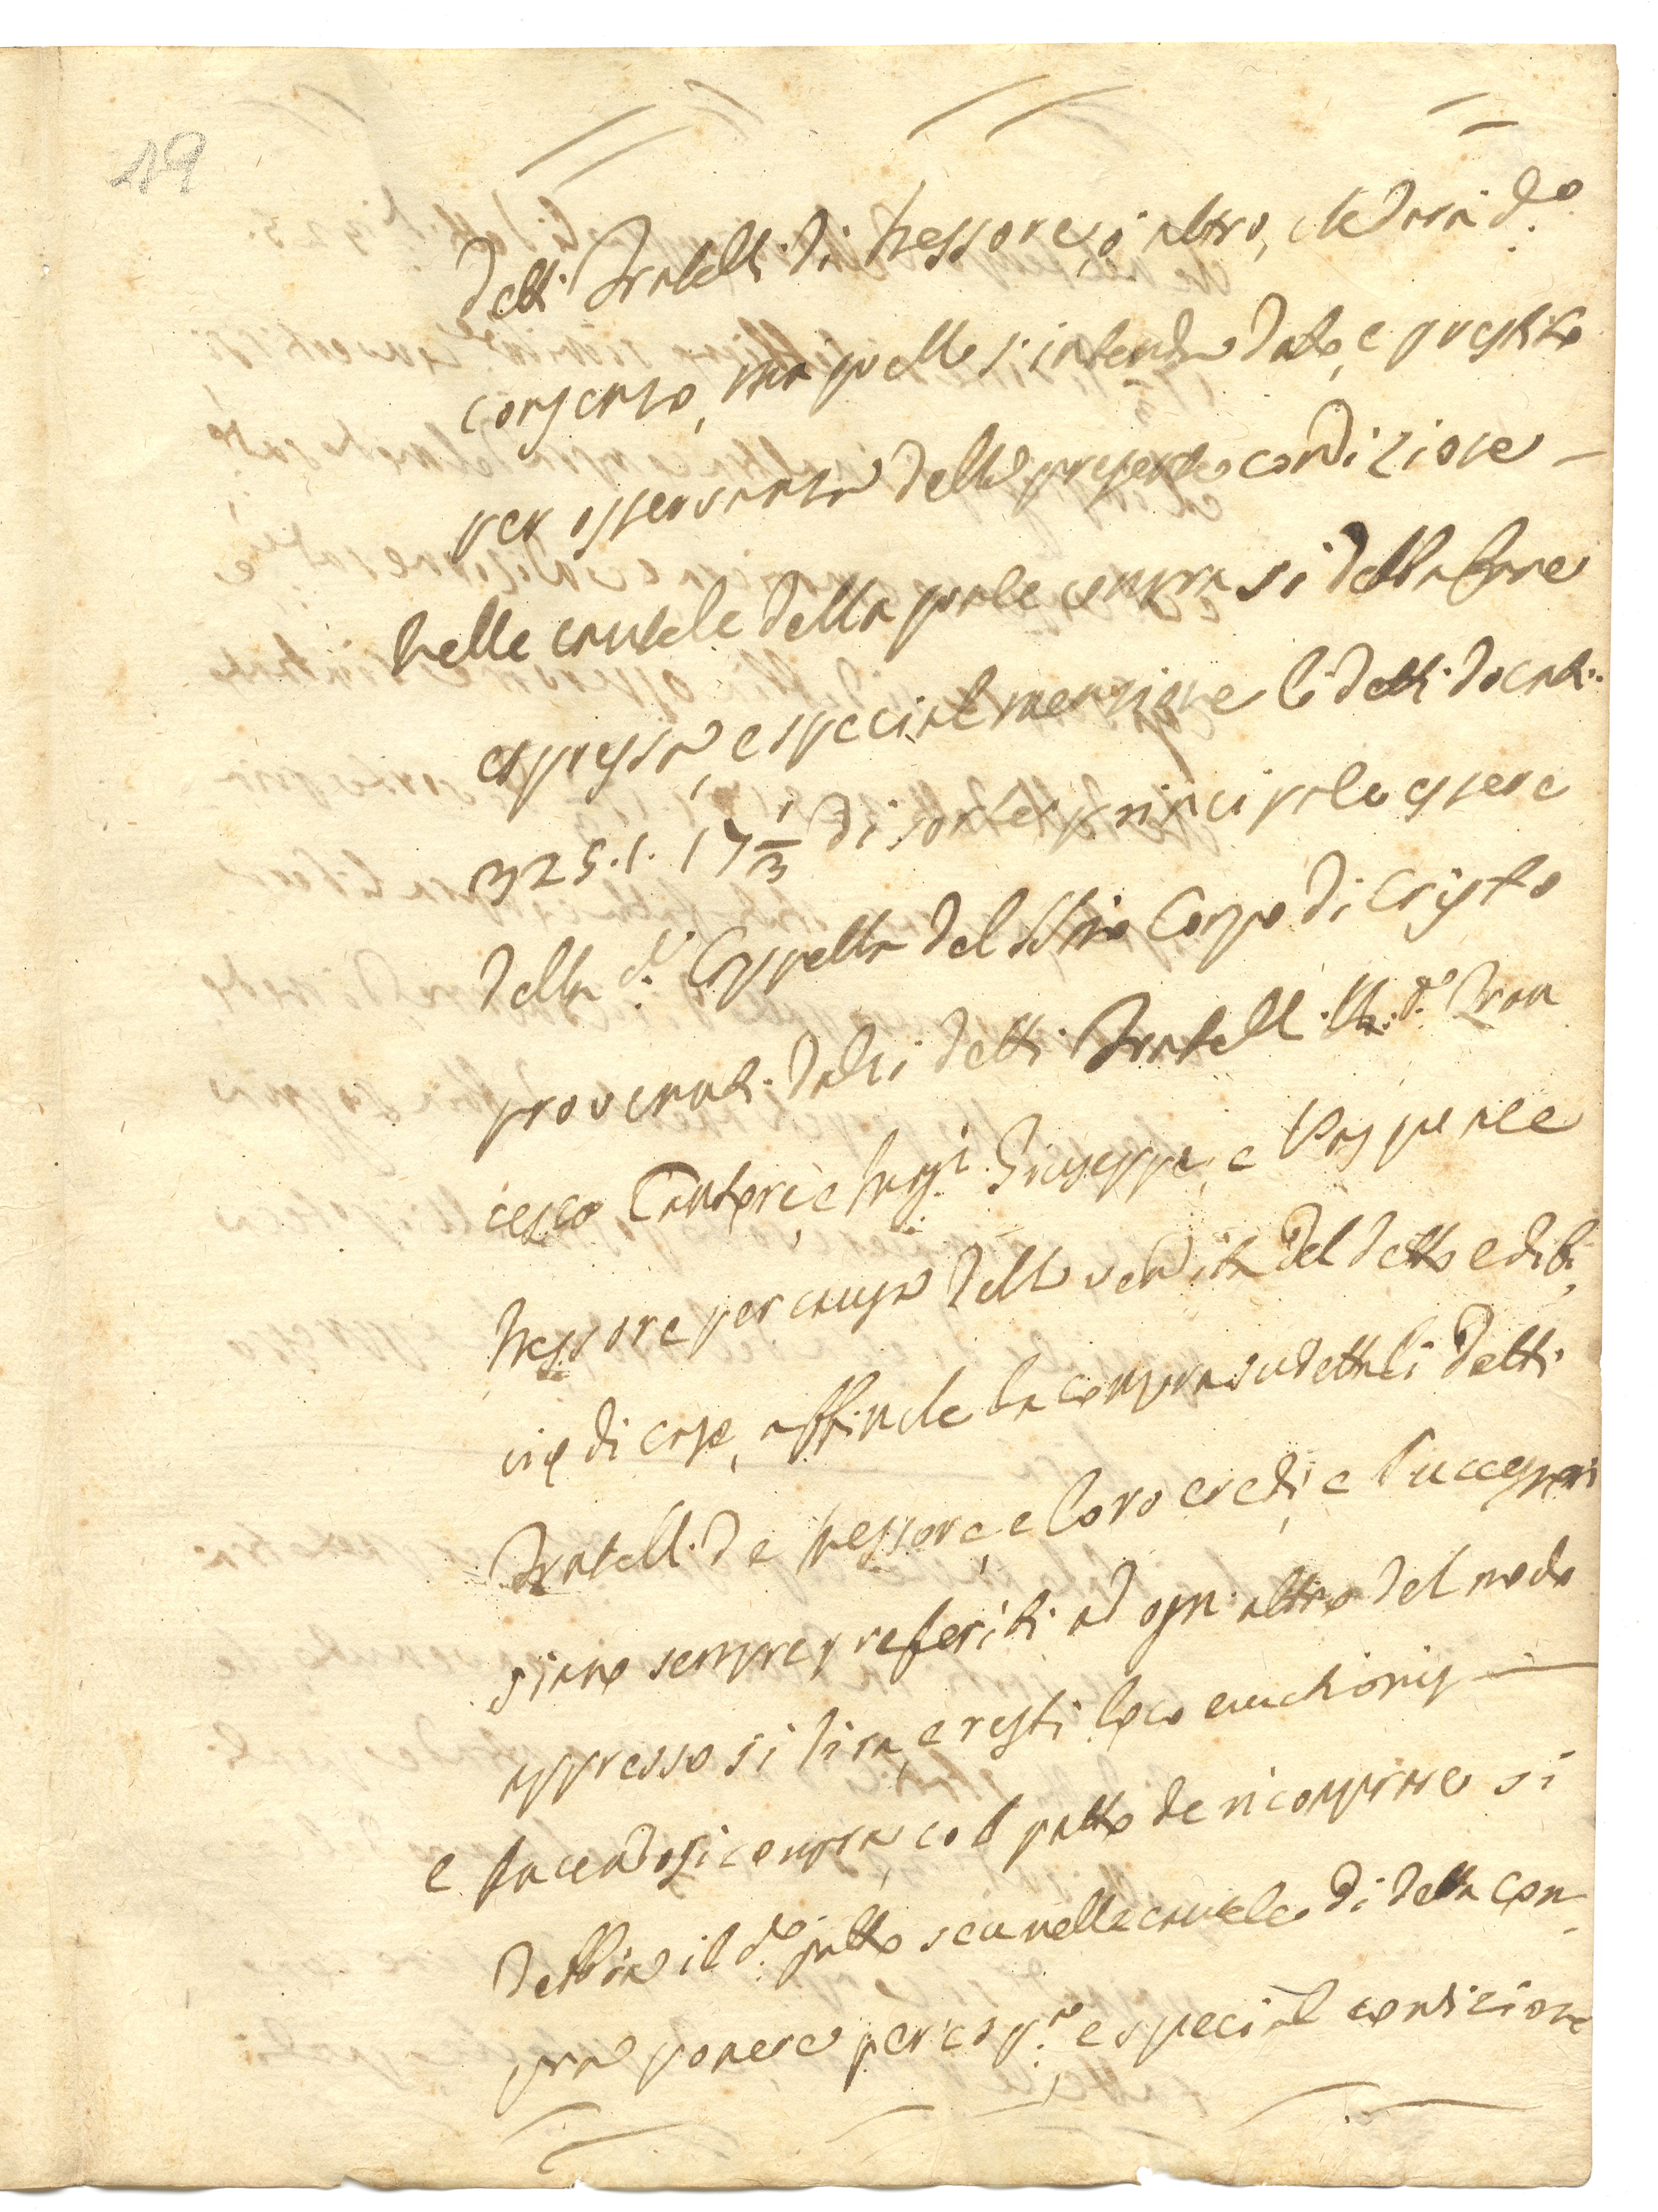 19
detti Fratelli di Tressore, ò altro, che darà d.º
consenso, ma quello s'intenda dato, e prestito
per osservanza della presente condizione –
Nelle cautele della quale compra si debba fare
espressa, e special menzione li detti docati
325.1.17 1/3 di sorte principale essere
della d.ª Cappella del SSmo Corpo di Cristo
provenuti dalli detti Fratelli d.º Fran
cesco Cantore, e Giuseppe, e Pasquale
Tressore per causa della vendita del detto edifi,
cio di case, affinche la compra sudetta li detti
Fratelli de Tressore, e loro eredi, e successori
siano sempre preferiti ad ogn'altro del modo
appresso si dirà, e resti loco euuctionis —
E facendosi compra, col patto de ricomprare si
debbia il d.º patto seu nelle cautele di detta com
pra ponere per esp.ª e special condizione